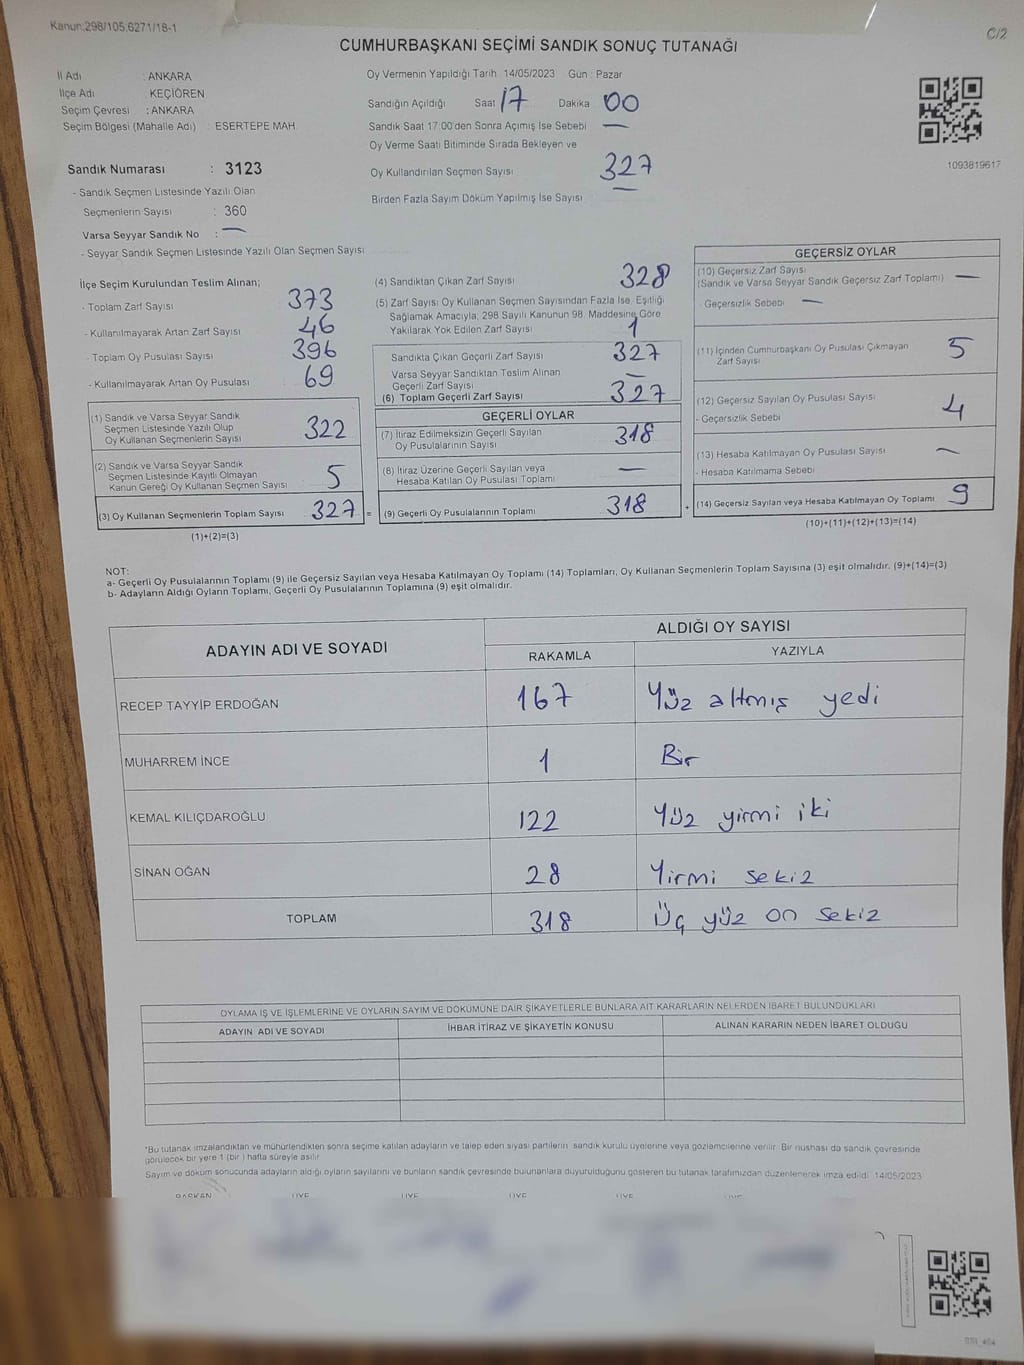 Kanun:298/105,6271/18-1
C/2
CUMHURBAŞKANI SEÇİMİ SANDIK SONUÇ TUTANAĞI
İl Adı : ANKARA
İlçe Adı : KEÇİÖREN
Seçim Çevresi : ANKARA
Seçim Bölgesi (Mahalle Adı) : ESERTEPE MAH.
Sandık Numarası : 3123
- Sandık Seçmen Listesinde Yazılı Olan
Seçmenlerin Sayısı : 360
Varsa Seyyar Sandık No : —
- Seyyar Sandık Seçmen Listesinde Yazılı Olan Seçmen Sayısı:
Oy Vermenin Yapıldığı Tarih : 14/05/2023 Gün : Pazar
Sandığın Açıldığı Saat 17 Dakika 00
Sandık Saat 17:00'den Sonra Açımış İse Sebebi —
Oy Verme Saati Bitiminde Sırada Bekleyen ve
Oy Kullandırılan Seçmen Sayısı 327
Birden Fazla Sayım Döküm Yapılmış İse Sayısı —
1093819617
İlçe Seçim Kurulundan Teslim Alınan;
- Toplam Zarf Sayısı 373
- Kullanılmayarak Artan Zarf Sayısı 46
- Toplam Oy Pusulası Sayısı 396
- Kullanılmayarak Artan Oy Pusulası 69
(1) Sandık ve Varsa Seyyar Sandık
Seçmen Listesinde Yazılı Olup
Oy Kullanan Seçmenlerin Sayısı 322
(2) Sandık ve Varsa Seyyar Sandık
Seçmen Listesinde Kayıtlı Olmayan
Kanun Gereği Oy Kullanan Seçmen Sayısı 5
(3) Oy Kullanan Seçmenlerin Toplam Sayısı 327 =
(1)+(2)=(3)
(4) Sandıktan Çıkan Zarf Sayısı 328
(5) Zarf Sayısı Oy Kullanan Seçmen Sayısından Fazla İse, Eşitliği
Sağlamak Amacıyla, 298 Sayılı Kanunun 98. Maddesine Göre
Yakılarak Yok Edilen Zarf Sayısı 1
Sandıkta Çıkan Geçerli Zarf Sayısı 327
Varsa Seyyar Sandıktan Teslim Alınan
Geçerli Zarf Sayısı —
(6) Toplam Geçerli Zarf Sayısı 327
GEÇERLİ OYLAR
(7) İtiraz Edilmeksizin Geçerli Sayılan
Oy Pusulalarının Sayısı 318
(8) İtiraz Üzerine Geçerli Sayılan veya
Hesaba Katılan Oy Pusulası Toplamı —
(9) Geçerli Oy Pusulalarının Toplamı 318 +
GEÇERSİZ OYLAR
(10) Geçersiz Zarf Sayısı
(Sandık ve Varsa Seyyar Sandık Geçersiz Zarf Toplamı) —
- Geçersizlik Sebebi —
(11) İçinden Cumhurbaşkanı Oy Pusulası Çıkmayan
Zarf Sayısı 5
(12) Geçersiz Sayılan Oy Pusulası Sayısı 4
- Geçersizlik Sebebi
(13) Hesaba Katılmayan Oy Pusulası Sayısı —
- Hesaba Katılmama Sebebi
(14) Geçersiz Sayılan veya Hesaba Katılmayan Oy Toplamı 9
(10)+(11)+(12)+(13)=(14)
NOT:
a- Geçerli Oy Pusulalarının Toplamı (9) ile Geçersiz Sayılan veya Hesaba Katılmayan Oy Toplamı (14) Toplamları, Oy Kullanan Seçmenlerin Toplam Sayısına (3) eşit olmalıdır. (9)+(14)=(3)
b- Adayların Aldığı Oyların Toplamı, Geçerli Oy Pusulalarının Toplamına (9) eşit olmalıdır.
ADAYIN ADI VE SOYADI
ALDIĞI OY SAYISI
RAKAMLA YAZIYLA
RECEP TAYYİP ERDOĞAN 167 Yüz altmış yedi
MUHARREM İNCE 1 Bir
KEMAL KILIÇDAROĞLU 122 Yüz yirmi iki
SİNAN OĞAN 28 Yirmi sekiz
TOPLAM 318 Üç yüz on sekiz
OYLAMA İŞ VE İŞLEMLERİNE VE OYLARIN SAYIM VE DÖKÜMÜNE DAİR ŞİKAYETLERLE BUNLARA AİT KARARLARIN NELERDEN İBARET BULUNDUKLARI
ADAYIN ADI VE SOYADI İHBAR İTİRAZ VE ŞİKAYETİN KONUSU ALINAN KARARIN NEDEN İBARET OLDUĞU
*Bu tutanak imzalandıktan ve mühürlendikten sonra seçime katılan adayların ve talep eden siyasi partilerin sandık kurulu üyelerine veya gözlemcilerine verilir. Bir nüshası da sandık çevresinde
görülecek bir yere 1 (bir) hafta süreyle asılır.
Sayım ve döküm sonucunda adayların aldığı oyların sayılarını ve bunların sandık çevresinde bulunanlara duyurulduğunu gösteren bu tutanak tarafımızdan düzenlenerek imza edildi. 14/05/2023
BAŞKAN ÜYE ÜYE ÜYE ÜYE ÜYE